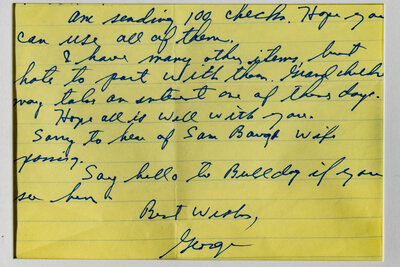 am sending 100 checks. Hope you
can use all of them.
I have many other items, but
hate to part with them. Grandchildren
may take an interest one of these days.
Hope all is well with you.
Sorry to hear of Sam Baugh wife
passing.
Say hello to Bulldog if you
see him.
Best Wishes,
George